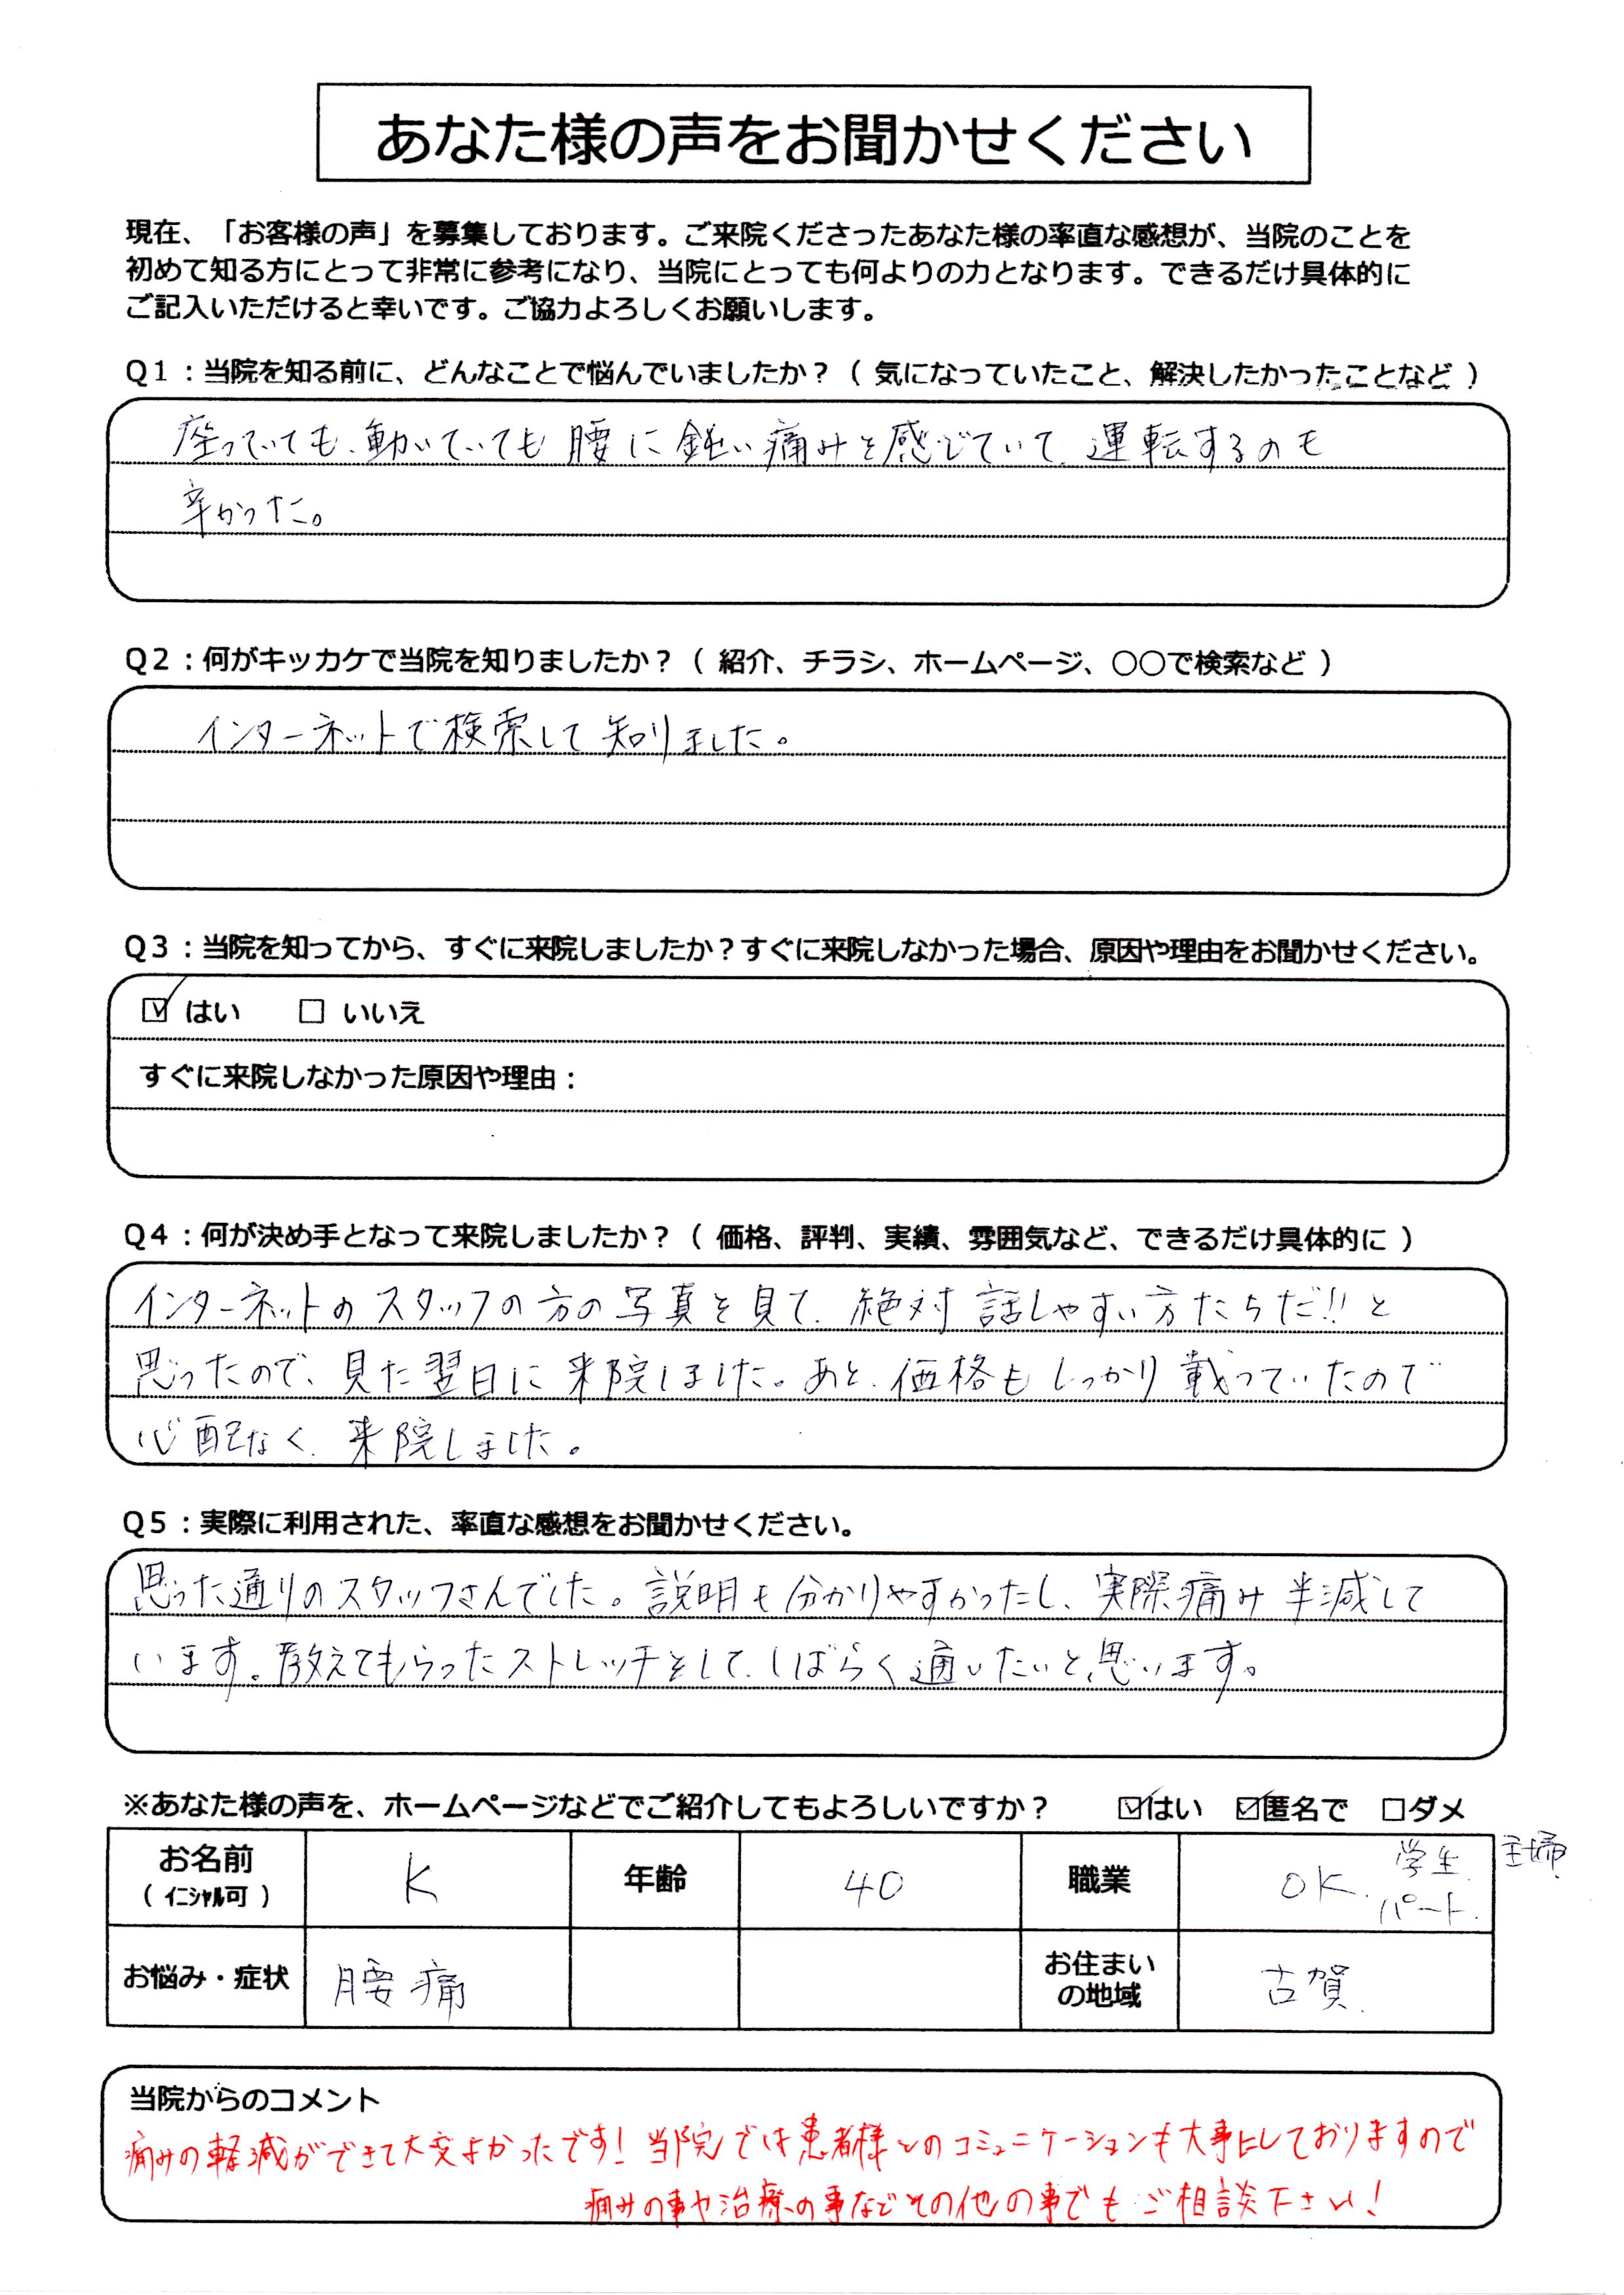 あなた様の声をお聞かせください
現在、「お客様の声」を募集しております。ご来院くださったあなた様の率直な感想が、当院のことを
初めて知る方にとって非常に参考になり、当院にとっても何よりの力となります。できるだけ具体的に
ご記入いただけると幸いです。ご協力よろしくお願いします。
Q1：当院を知る前に、どんなことで悩んでいましたか？（ 気になっていたこと、解決したかったことなど ）
座っていても、動いていても腰に鈍い痛みを感じていて、運転するのも
辛かった。
Q2：何がキッカケで当院を知りましたか？（ 紹介、チラシ、ホームページ、○○で検索など ）
インターネットで検索して知りました。
Q3：当院を知ってから、すぐに来院しましたか？すぐに来院しなかった場合、原因や理由をお聞かせください。
☑ はい　□ いいえ
すぐに来院しなかった原因や理由：
Q4：何が決め手となって来院しましたか？（ 価格、評判、実績、雰囲気など、できるだけ具体的に ）
インターネットのスタッフの方の写真を見て、絶対話しやすい方たちだ!!と
思ったので、見た翌日に来院しました。あと、価格もしっかり載っていたので
心配なく、来院しました。
Q5：実際に利用された、率直な感想をお聞かせください。
思った通りのスタッフさんでした。説明も分かりやすかったし、実際痛み半減して
います。教えてもらったストレッチをして、しばらく通いたいと思います。
※あなた様の声を、ホームページなどでご紹介してもよろしいですか？　☑はい　☑匿名で　□ダメ
お名前（ｲﾆｼｬﾙ可） K 年齢 40 職業 OK. 学生. パート. 主婦
お悩み・症状 腰痛 お住まいの地域 古賀.
当院からのコメント
痛みの軽減ができて大変よかったです！当院では患者様とのコミュニケーションも大事にしておりますので
痛みの事や治療の事などその他の事でもご相談下さい！